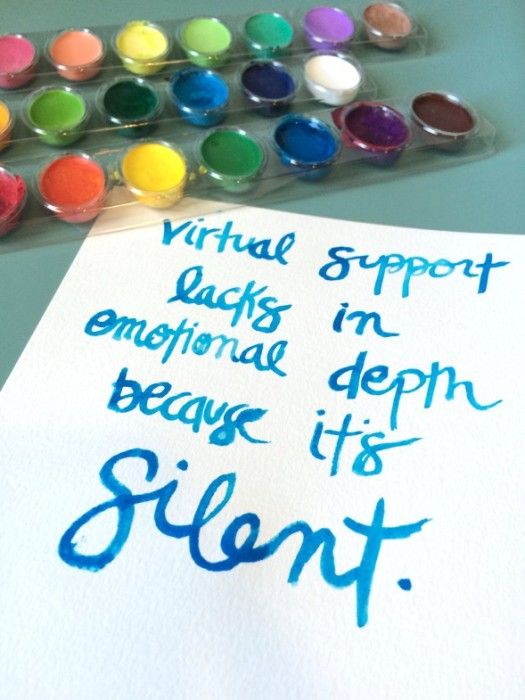 virtual support
lacks in
emotional depth
because it's
silent.